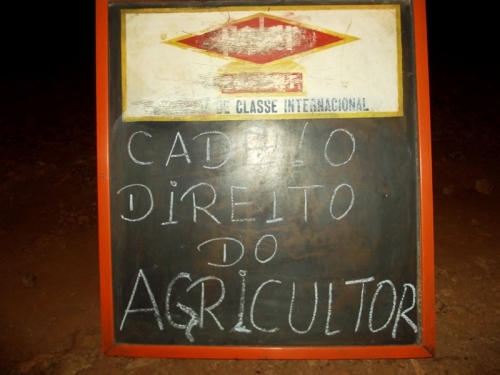 DE CLASSE INTERNACIONAL
CADÊ O
DIREITO
DO
AGRICULTOR